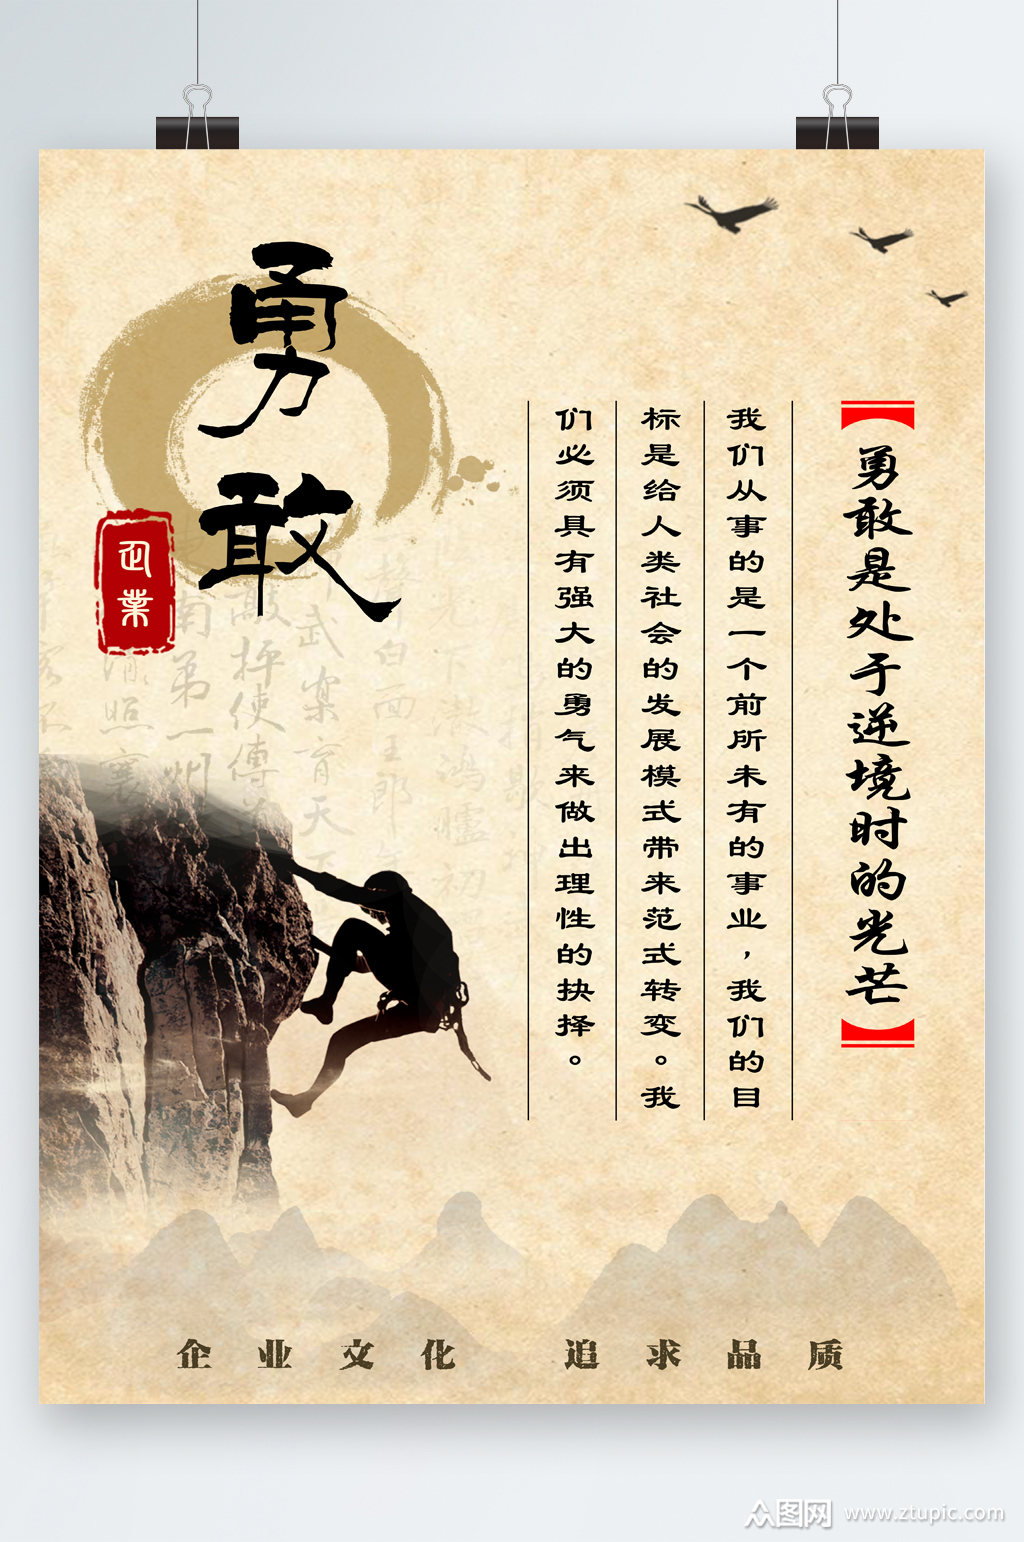 勇敢
企業
【勇敢是处于逆境时的光芒】
我们从事的是一个前所未有的事业，我们的目
标是给人类社会的发展模式带来范式转变。我
们必须具有强大的勇气来做出理性的抉择。
企业文化 追求品质
众图网 www.ztupic.com